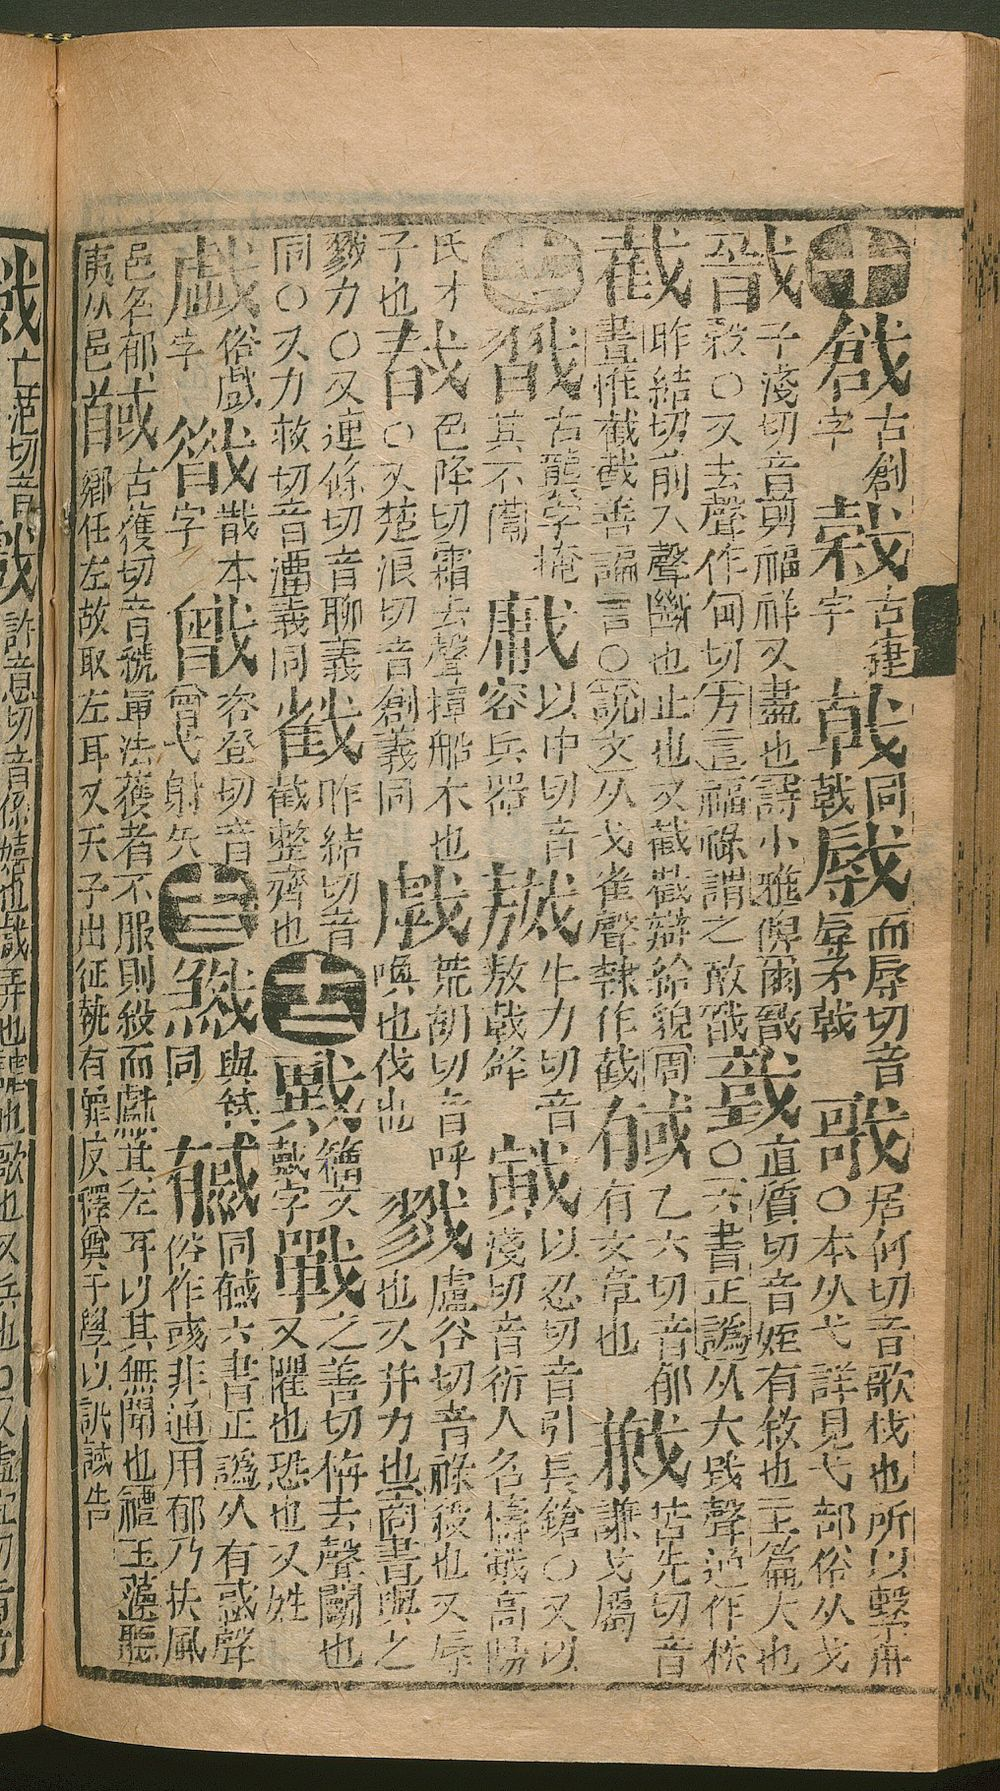 十 戧 古創字 古疌字 戟 同戟 而辱切音辱矛戟 戨 居何切音歌栈也所以繫舟○本从弋詳見弋部俗从戈
戩 子淺切音剪福祥又盡也詩小雅俾爾戩穀○又去聲作甸切方言福祿謂之戩 直質切音姪有敘也玉篇大也○六書正譌从大聲通作秩
截 昨結切前入聲斷也止也又截截辯給貌周書惟截截善諞言○說文从戈雀聲隸作截 戫 乙六切音郁有文章也 苦先切音謙戈屬
十一 古字掩其不備 以中切音容兵器 牛刀切音敖戟鋒 戭 以忍切音引長鎗○又以淺切音衍人名檮戭高陽
氏才子也 色降切霜去聲樟船木也○又楚浪切音創義同 戯 荒胡切音呼喚也伐也 戮 盧谷切音祿殺也又辱也又并力也商書與之
戮力○又連條切音聊義同○又力救切音溜義同 昨結切音截整齊也 十二 籀文戴字 戰 之善切旃去聲鬭也又懼也恐也又姓
戯 俗戲字 散本字 咨登切音曾弋射矢 十三 與同 同戫六書正譌从有惑聲俗作彧非通用郁乃扶風
邑名郁夷从邑 馘 古獲切音虢軍法獲者不服則殺而獻其左耳以其無聞也禮玉藻聽鄉任左故取左耳又天子出征執有罪反釋奠于學以訊馘告
亡范切音 戲 許意切音係嬉也戲弄也謔也歇也又兵也